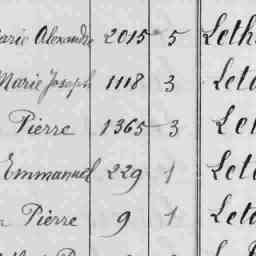 Marie Alexandre 2015 5 Leth
Marie Joseph 1118 3 Let
Pierre 1365 3 Let
Emmanuel 229 1 Let
Pierre 9 1 Let